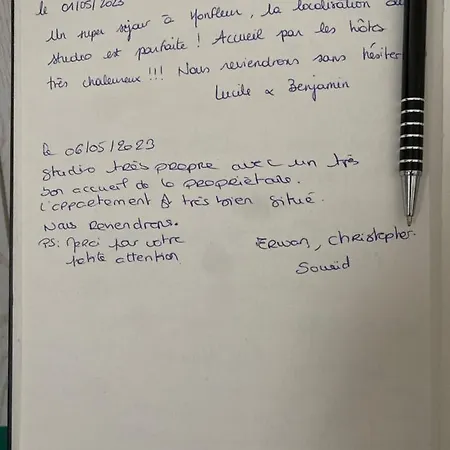 le 01/05/2023
Un super séjour à Honfleur, la localisation du
studio est parfaite ! Accueil par les hôtes
très chaleureux !!! Nous reviendrons sans hésiter
Lucile & Benjamin
le 06/05/2023
Studio très propre avec un très
bon accueil de la propriétaire.
L'appartement très bien situé.
Nous Reviendrons.
PS: Merci par votre
petite attention
Erwan, Christopher